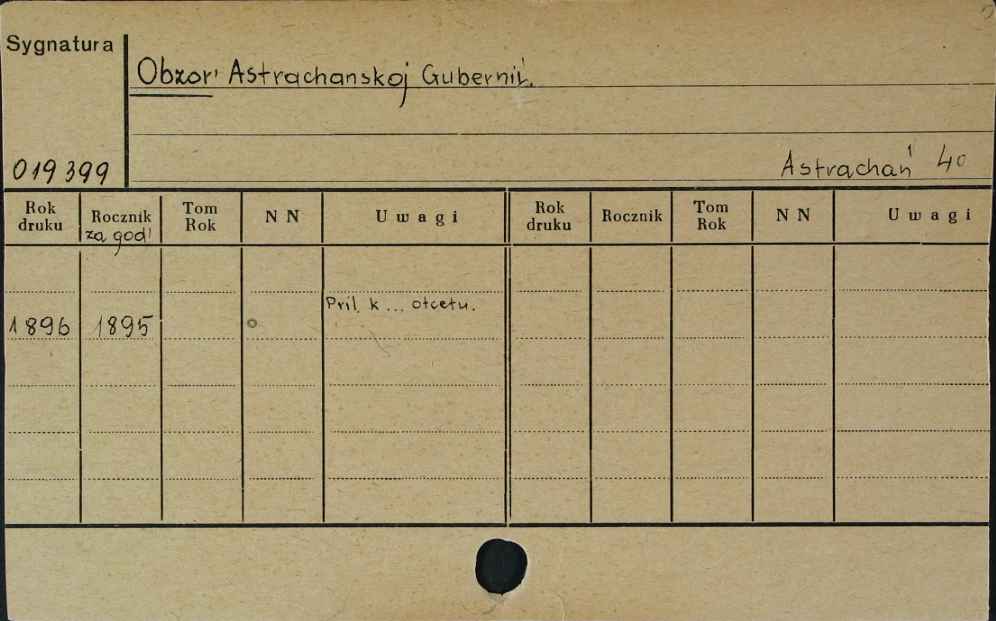 Sygnatura
Obzor' Astrachanskoj Gubernii.
019399
Astrachań' 4o
Rok druku Rocznik za god' Tom Rok N N Uwagi Rok druku Rocznik Tom Rok N N Uwagi
Pril. k ... otcetu.
1896 1895